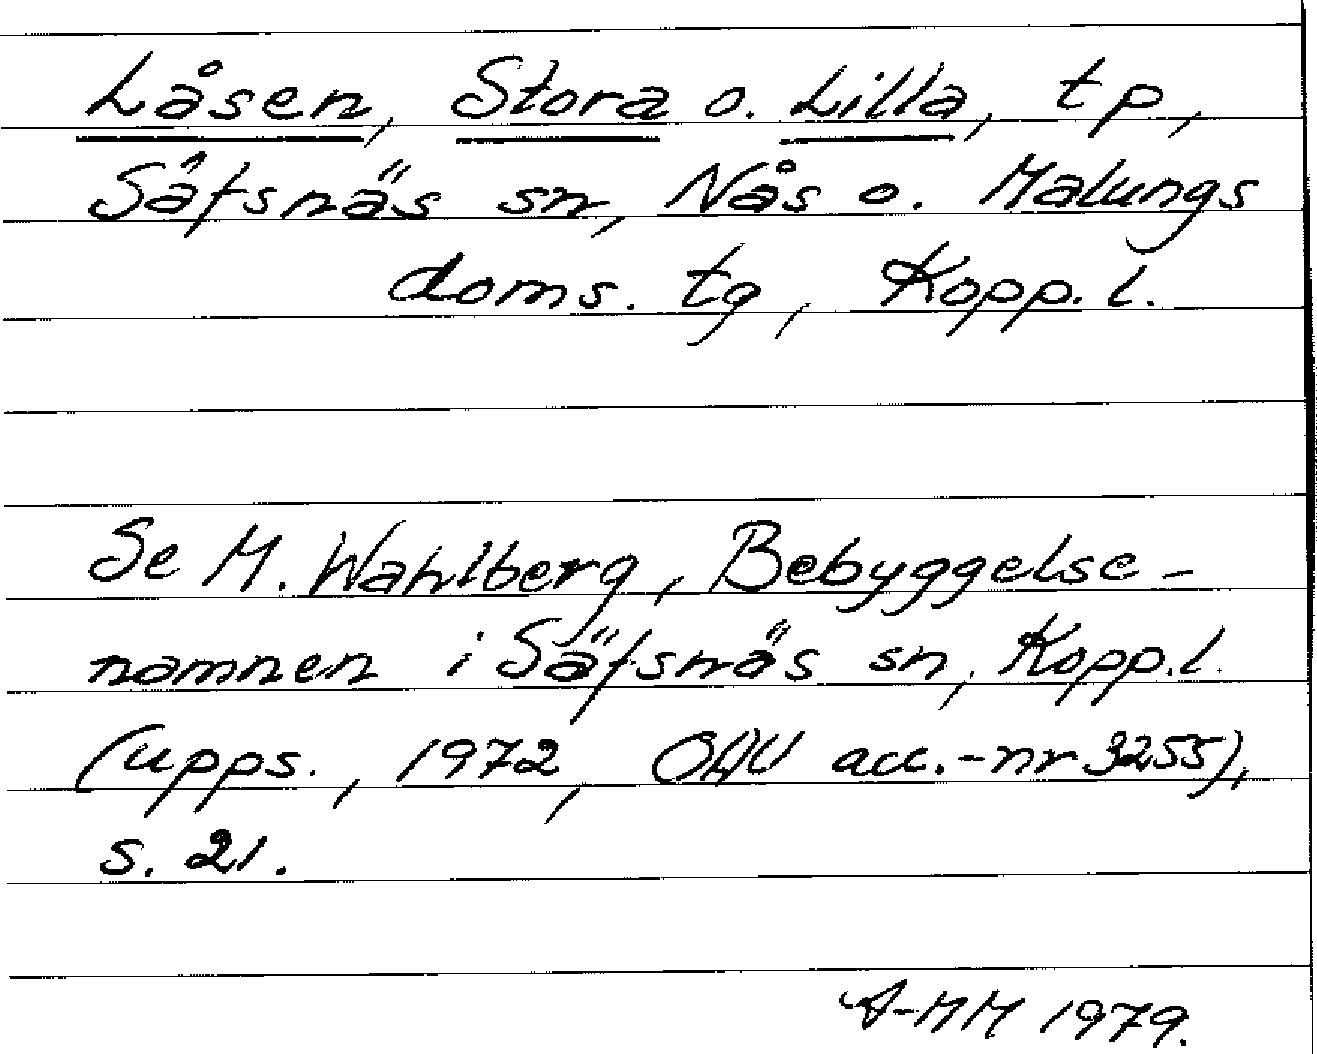 Låsen, Stora o. Lilla, tp,
Säfsnäs sn, Nås o. Malungs
doms. tg, Kopp. l.
Se M. Wahlberg, Bebyggelse-
namnen i Säfsnäs sn, Kopp.l.
(upps., 1972, OAU acc.-nr 3255),
s. 21.
A-MM 1979.